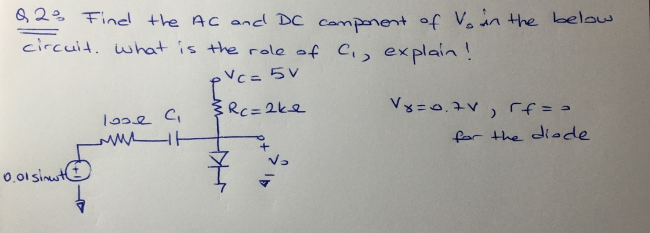 Q2: Find the AC and DC component of Vo in the below
circuit. What is the role of C1, explain!
VC = 5V
100Ω C1
RC=2kΩ
Vγ=0.7V, rf=0
for the diode
+
Vo
-
0.01sinwt